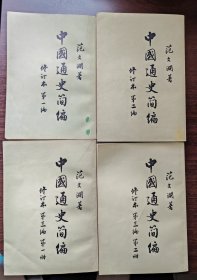 范文澜著
中國通史简编
修订本第一编
范文澜著
中國通史简编
修订本第二编
范文澜著
中國通史简编
修订本第三编第一册
范文澜著
中國通史简编
修订本第三编第二册